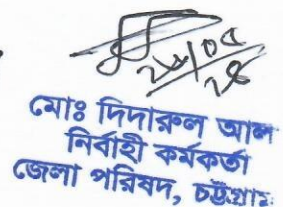 ২৮/০৫
২৫
মোঃ দিদারুল আল
নির্বাহী কর্মকর্তা
জেলা পরিষদ, চট্টগ্রাম